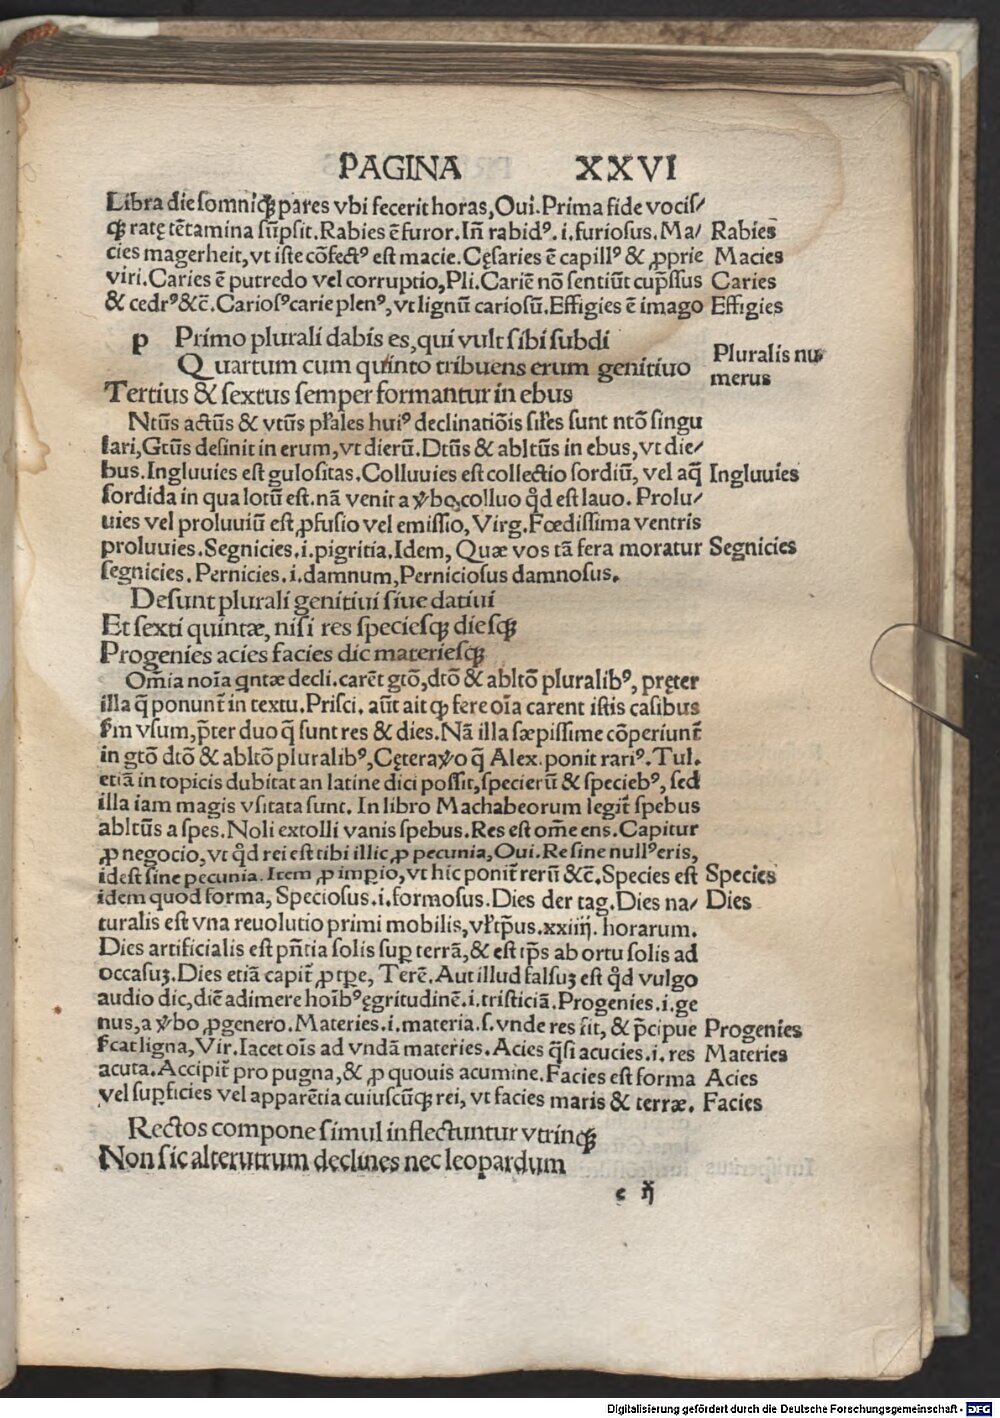 PAGINA XXVI
Libra die somniqꝫ pares vbi fecerit horas, Oui. Prima fide vocis⸗
qꝫ ratę tētamina sūpsit. Rabies ē furor. Iñ rabidꝰ. i. furiosus. Ma⸗ Rabies
cies magerheit, vt iste cōfectꝰ est macie. Cęsaries ē capillꝰ & ꝓprie Macies
viri. Caries ē putredo vel corruptio, Pli. Cariē nō sentiūt cup̄ssus Caries
& cedrꝰ &c̄. Cariosꝰ carie plenꝰ, vt lignū cariosū. Effigies ē imago Effigies
p Primo plurali dabis es, qui vult sibi subdi
Quartum cum quinto tribuens erum genitiuo Pluralis nu⸗
merus
Tertius & sextus semper formantur in ebus
Ntūs actūs & vtūs pľales huiꝰ declinatiōis siľes sunt ntō singu
lari, Gtūs desinit in erum, vt dierū. Dtūs & abltūs in ebus, vt die⸗
bus. Ingluuies est gulositas. Colluuies est collectio sordiū, vel aq̄ Ingluuies
sordida in qua lotū est. nā venit a v̾bo colluo qd̄ est lauo. Prolu⸗
uies vel proluuiū est ꝓfusio vel emissio, Virg. Fœdissima ventris
proluuies. Segnicies. i. pigritia. Idem, Quæ vos tā fera moratur Segnicies
segnicies. Pernicies. i. damnum, Perniciosus damnosus.
Desunt plurali genitiui siue datiui
Et sexti quintæ, nisi res speciesqꝫ diesqꝫ
Progenies acies facies dic materiesqꝫ
Om̄ia noīa qntæ decli. carēt gtō, dtō & abltō pluralibꝰ, pręter
illa q̄ ponunt̄ in textu. Prisci. aūt ait qꝫ fere oīa carent istis casibus
ẜm vsum, p̄ter duo q̄ sunt res & dies. Nā illa sæpissime cōperiunt̄
in gtō dtō & abltō pluralibꝰ, Cętera v̾o q̄ Alex. ponit rariꝰ. Tul.
etiā in topicis dubitat an latine dici possit, specierū & speciebꝰ, sed
illa iam magis vsitata sunt. In libro Machabeorum legit̄ spebus
abltūs a spes. Noli extolli vanis spebus. Res est om̄e ens. Capitur
ꝓ negocio, vt qd̄ rei est tibi illic, ꝓ pecunia, Oui. Re sine nullꝰ eris,
idest sine pecunia. Item ꝓ imꝑio, vt hic ponit̄ rerū &c̄. Species est Species
idem quod forma, Speciosus. i. formosus. Dies der tag. Dies na⸗ Dies
turalis est vna reuolutio primi mobilis, vľ tp̄us. xxiiij. horarum.
Dies artificialis est pn̄tia solis suꝑ terrā, & est tp̄s ab ortu solis ad
occasuꝫ. Dies etiā capit̄ ꝓ tꝑe, Terē. Aut illud falsuꝫ est qd̄ vulgo
audio dic, diē adimere hoībꝰ ęgritudinē. i. tristiciā. Progenies. i. ge
nus, a v̾bo ꝓgenero. Materies. i. materia. s. vnde res fit, & p̄cipue Progenies
ẜcat ligna, Vir. Iacet oīs ad vndā materies. Acies q̄si acucies. i. res Materies
acuta. Accipit̄ pro pugna, & ꝓ quouis acumine. Facies est forma Acies
vel suꝑficies vel apparētia cuiuscūqꝫ rei, vt facies maris & terræ. Facies
Rectos compone simul inflectuntur vtrinqꝫ
Non sic alterutrum declines nec leopardum
c ij
Digitalisierung gefördert durch die Deutsche Forschungsgemeinschaft - DFG